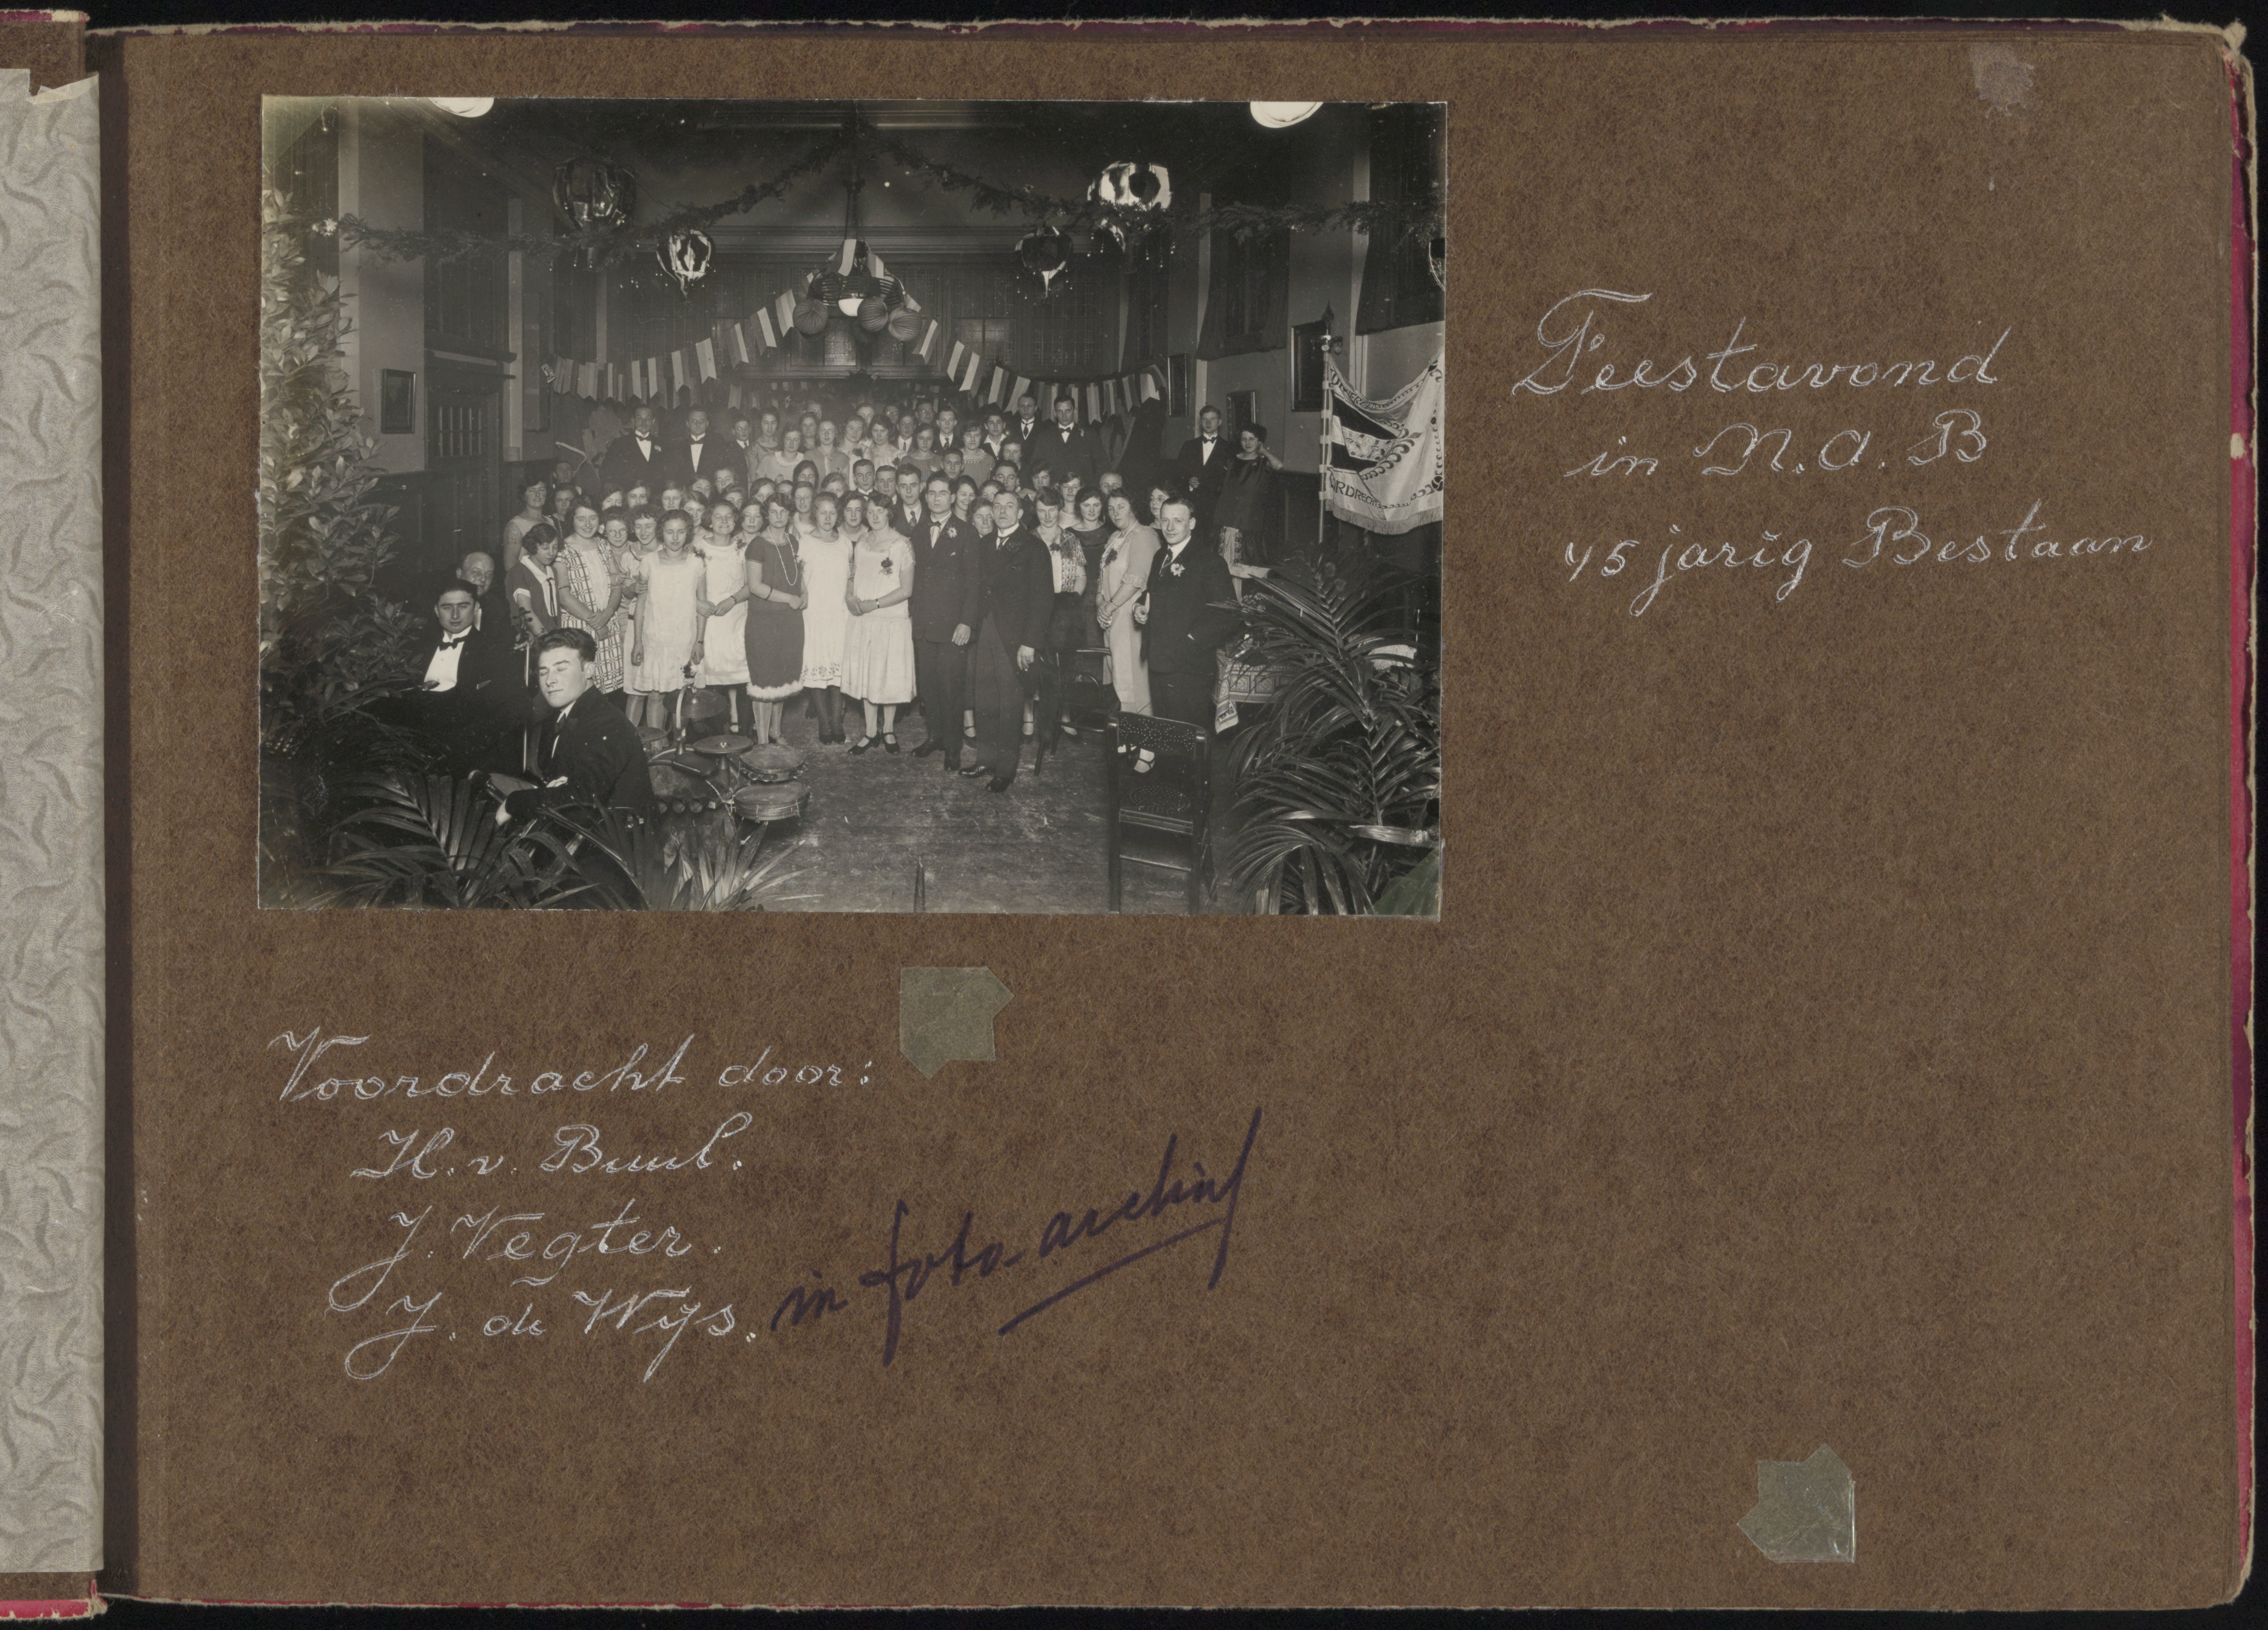 Feestavond
in N.A.B
45 jarig Bestaan
Voordracht door:
H. v. Buul.
J. Vegter.
J. de Wijs.
in foto-archief